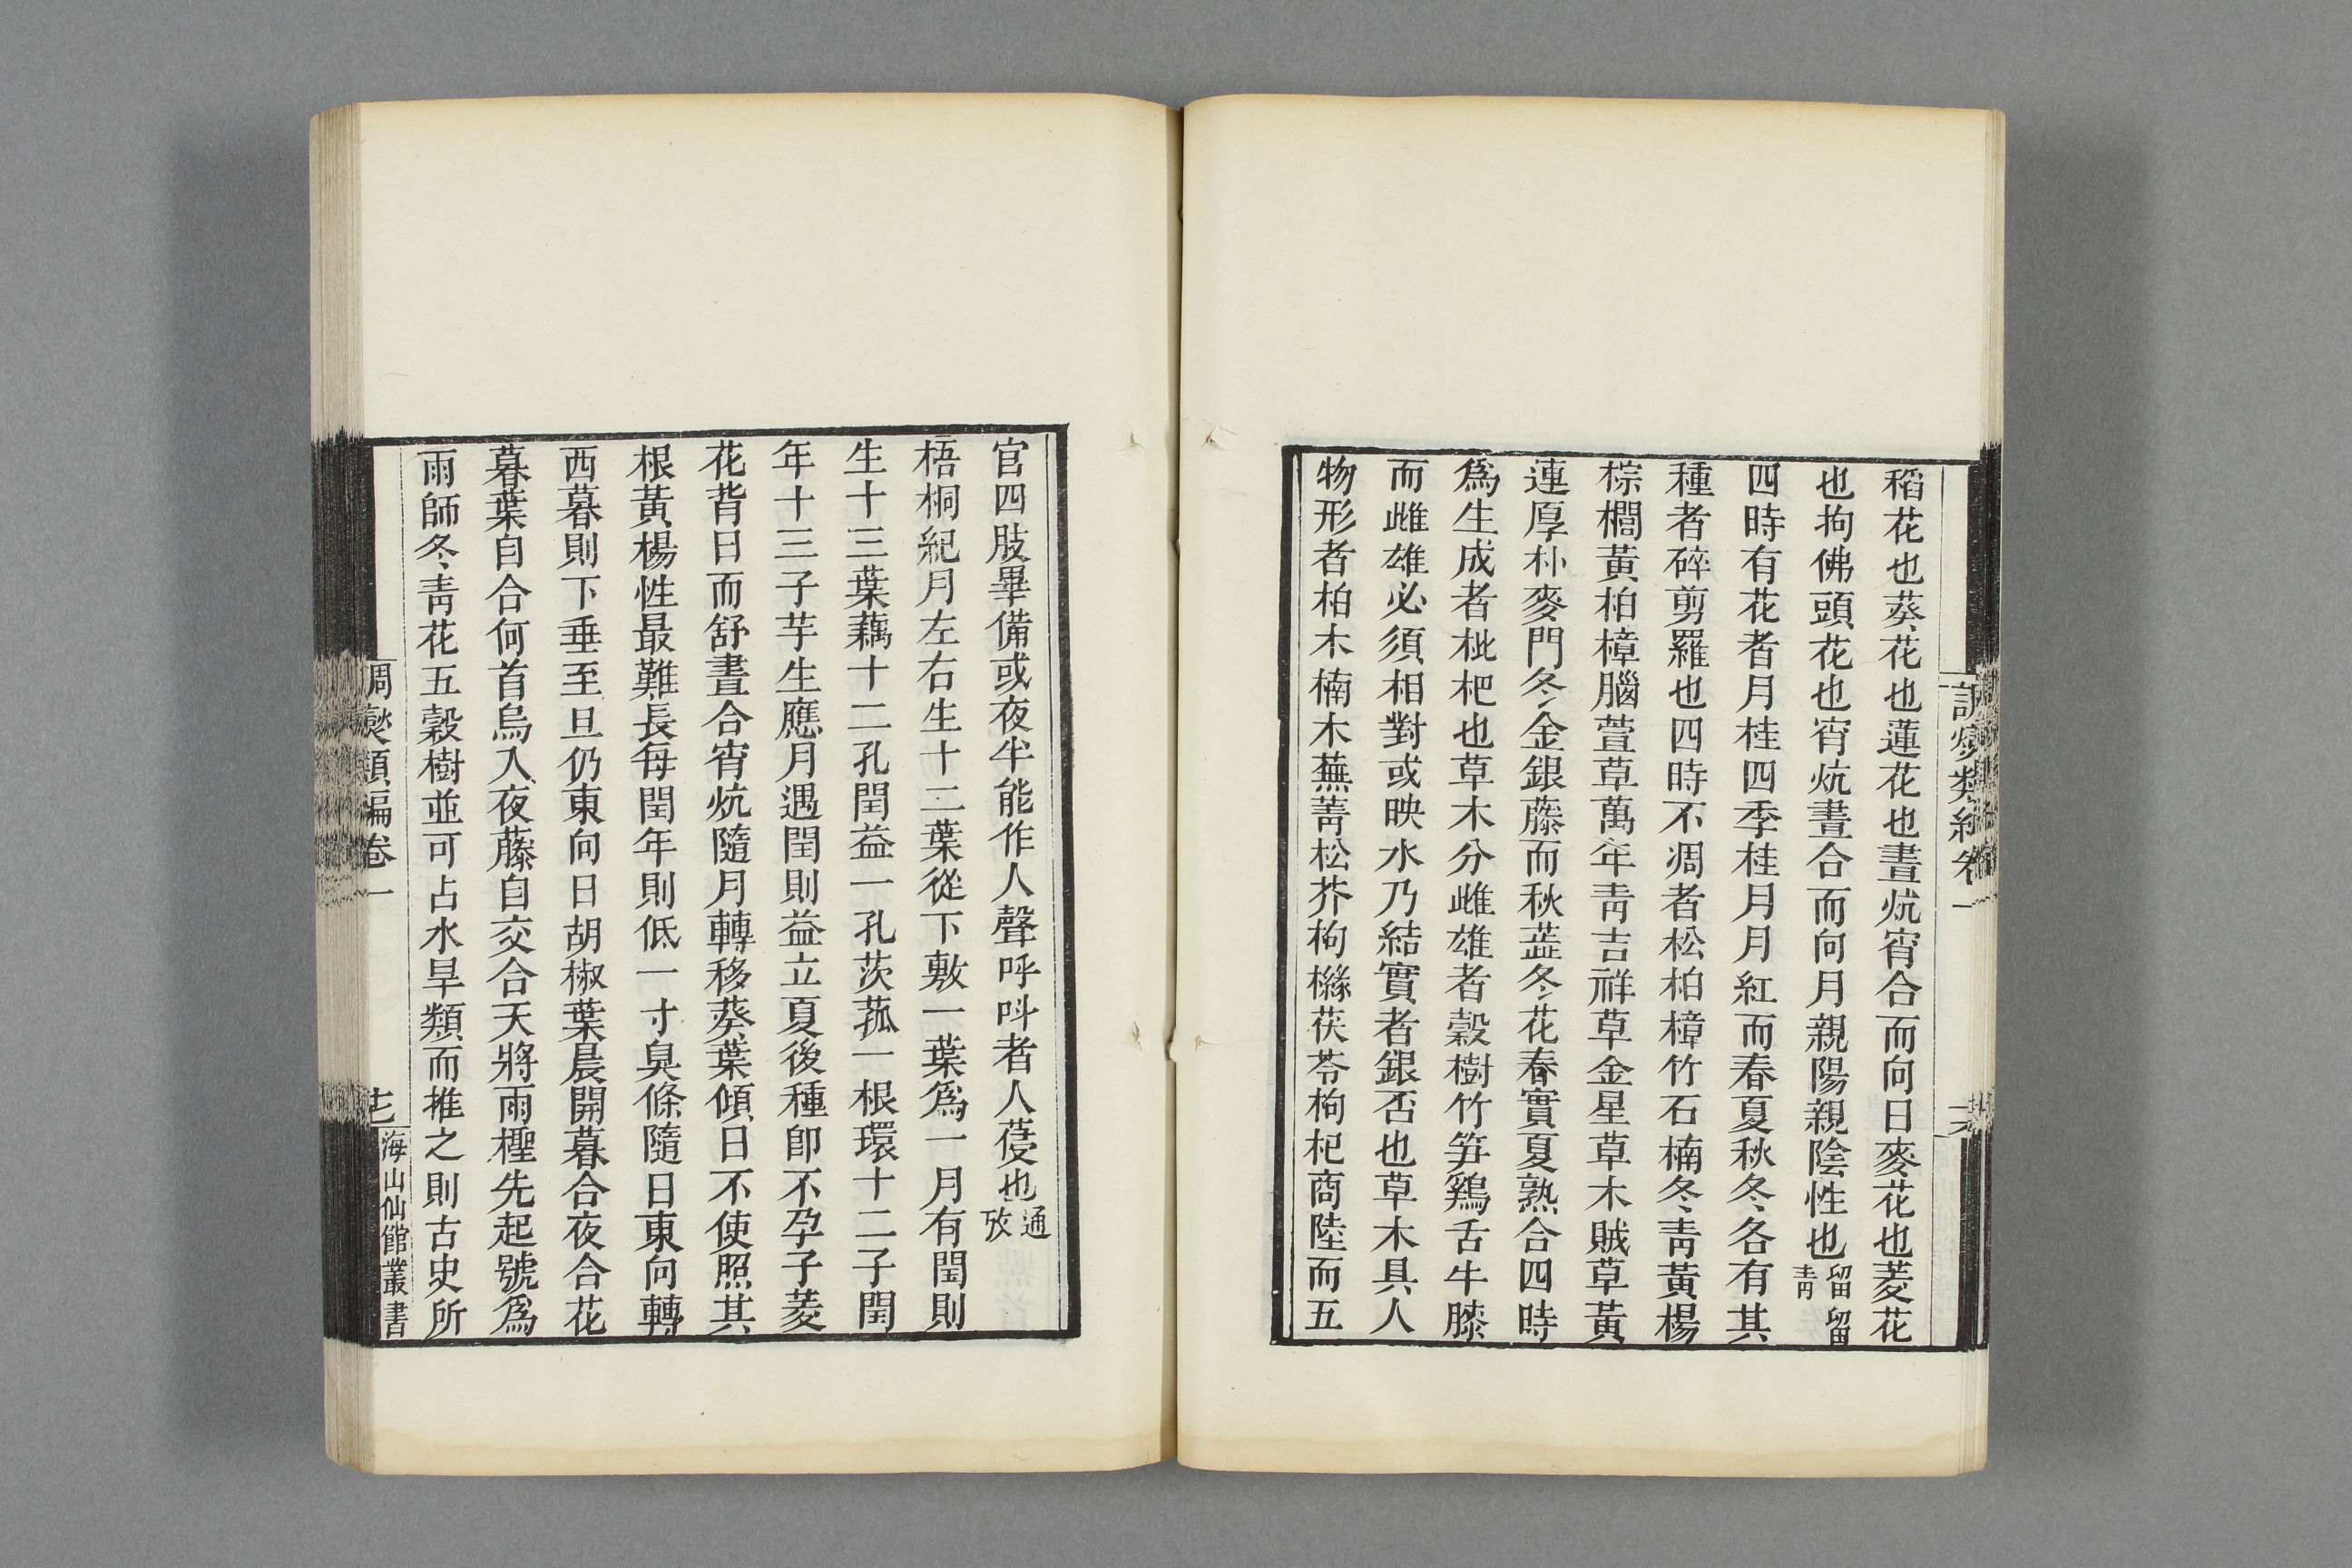 稻花也葵花也蓮花也晝炕宵合而向日麥花也菱花
也拘佛頭花也宵炕晝合而向月親陽親陰性也留留青
四時有花者月桂四季桂月月紅而春夏秋冬各有其
種者碎剪羅也四時不凋者松柏樟竹石楠冬青黃楊
棕櫚黃柏樟腦萱草萬年青吉祥草金星草木賊草黃
連厚朴麥門冬金銀藤而秋蕋冬花春實夏熟合四時
爲生成者枇杷也草木分雌雄者榖樹竹笋鷄舌牛膝
而雌雄必須相對或映水乃結實者銀否也草木具人
物形者柏木楠木蕪菁松芥枸櫞茯苓枸杞商陸而五
官四肢畢備或夜半能作人聲呼呌者人葠也通攷
梧桐紀月左右生十二葉從下敷一葉爲一月有閏則
生十三葉藕十二孔閏益一孔茨菰一根環十二子閏
年十三子芋生應月遇閏則益立夏後種卽不孕子菱
花背日而舒晝合宵炕隨月轉移葵葉傾日不使照其
根黃楊性最難長每閏年則低一寸臭條隨日東向轉
西暮則下垂至旦仍東向日胡椒葉晨開暮合夜合花
暮葉自合何首烏入夜藤自交合天將雨檉先起號爲
雨師冬靑花五穀樹並可占水旱類而推之則古史所
調燮類編卷一
海山仙館叢書